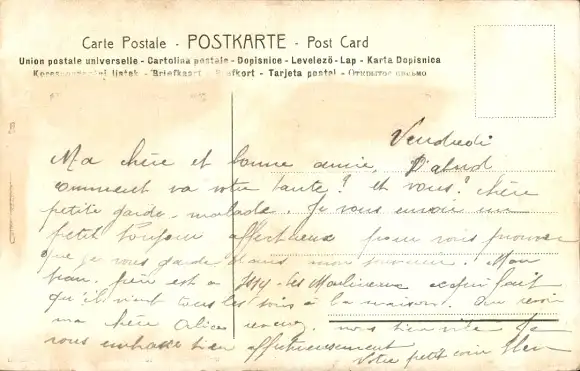 Carte Postale - POSTKARTE - Post Card
Union postale universelle - Cartolina postale - Dopisnice - Levelező-Lap - Karta Dopisnica
listek - Briefkaart - Brefkort - Tarjeta postal - Открытое письмо
Vendredi
Ma chère et bonne amie, D'abord
comment va votre tante? et vous? chère
petite garde-malade. Je vous envoie un
petit bonjour affectueux pour vous prouver
que je vous garde dans mon souvenir. Mon
frère est à Issy-les-Moulineaux ce qui fait
qu'il vient tous les soirs à la maison. Au revoir
ma chère Alice venez nous bien vite Je
vous embrasse bien affectueusement
Votre petit